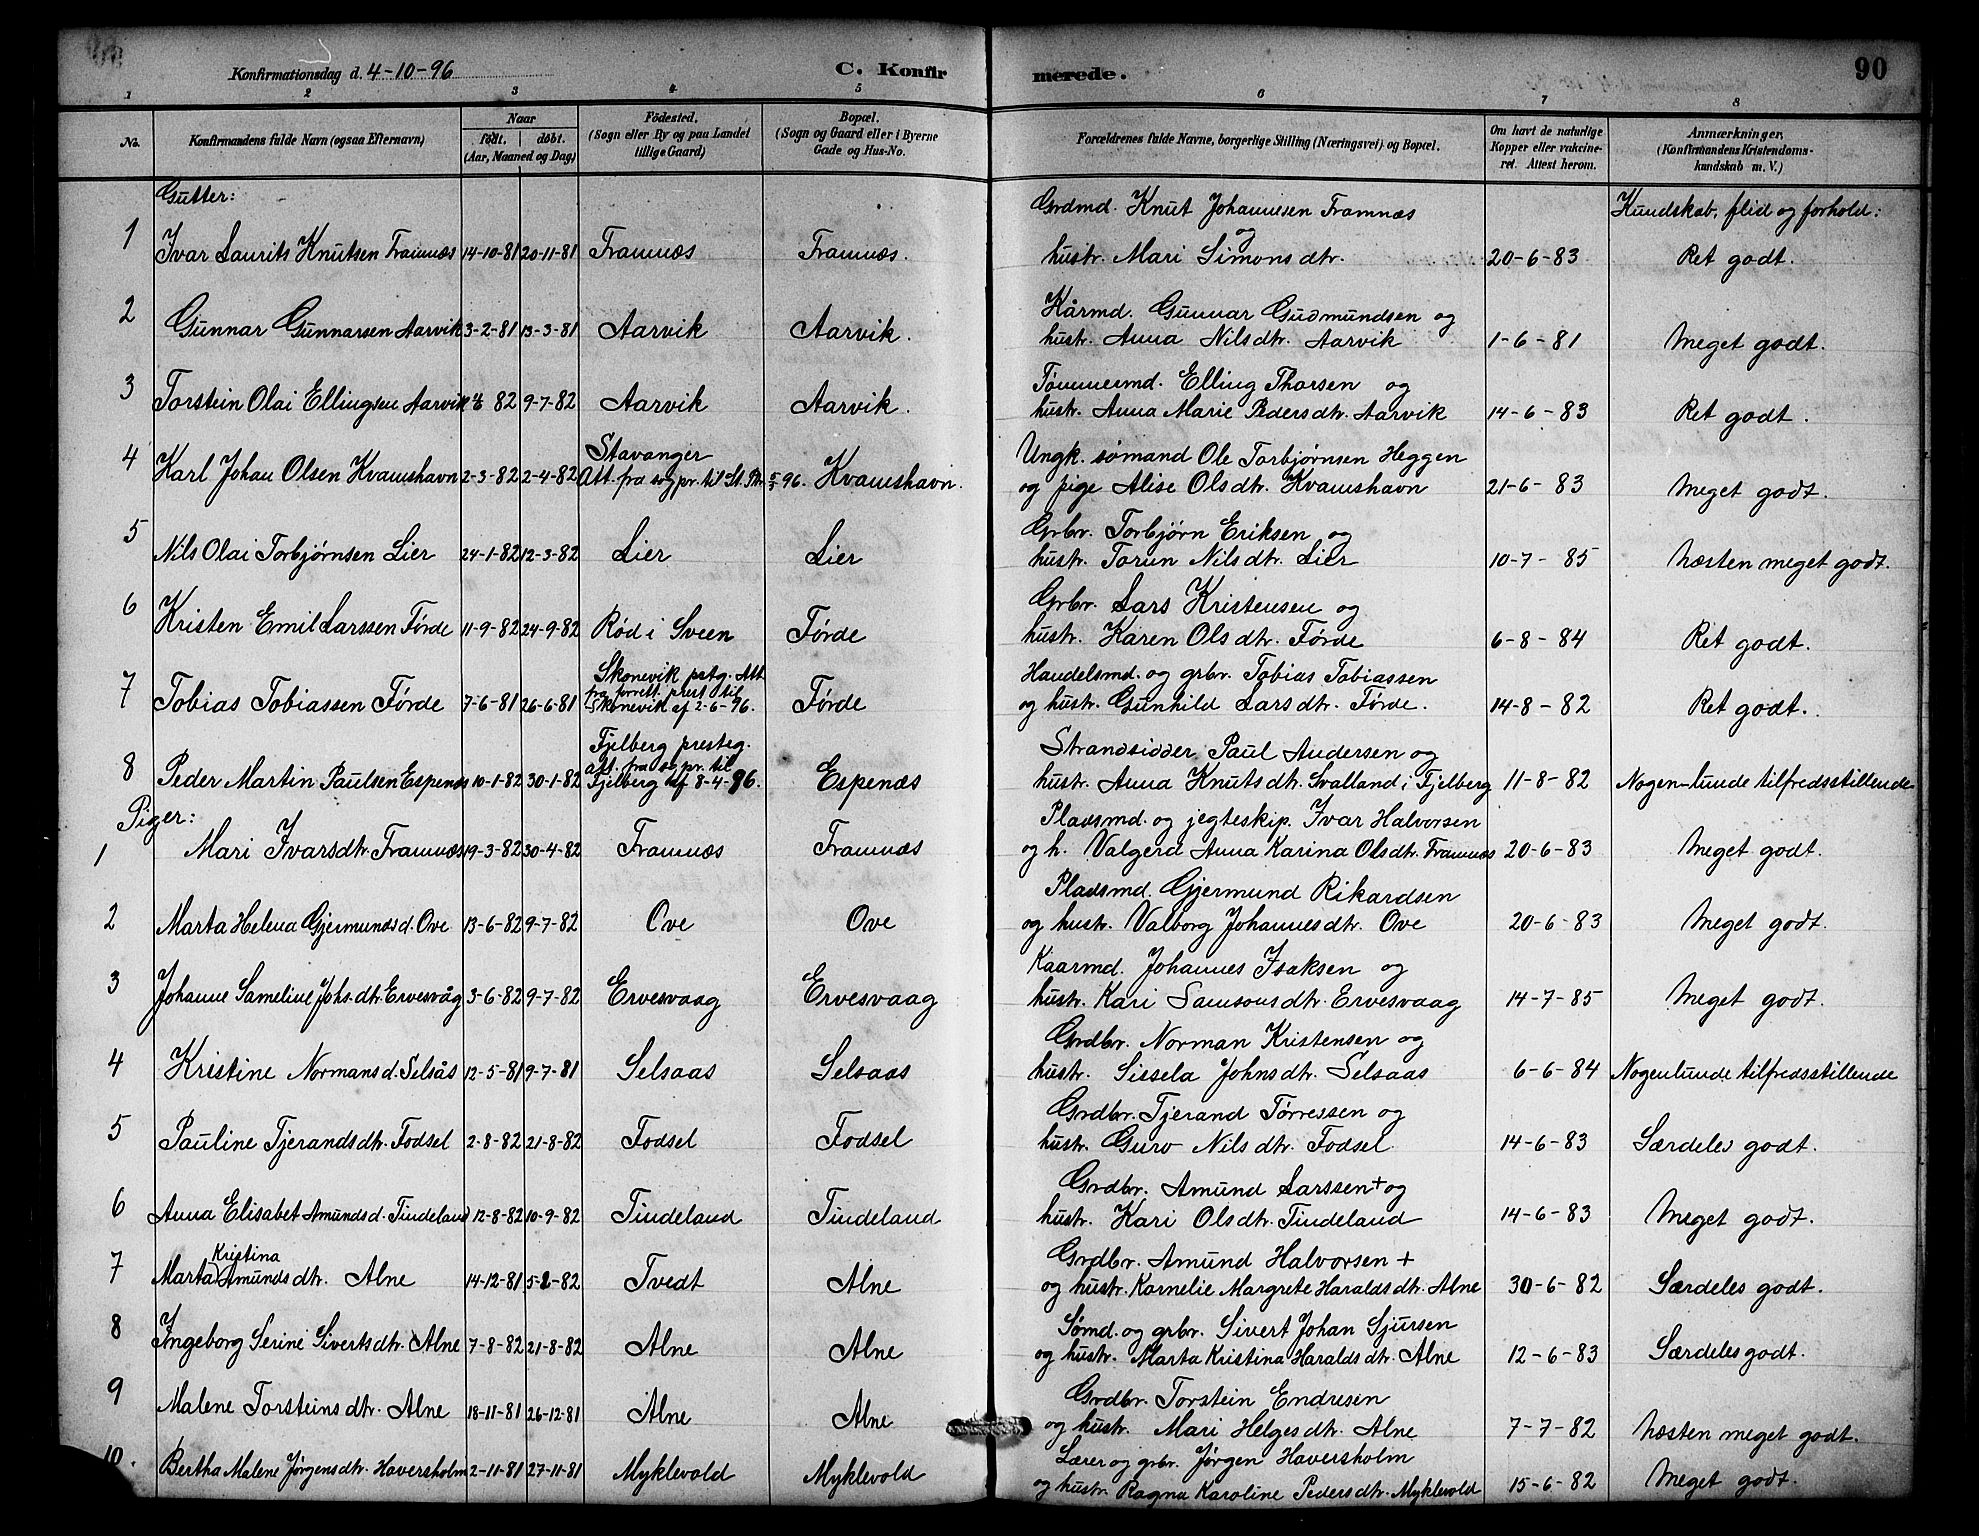 Konfirmationsdag d. 4-10-96 C. Konfirmerede. 90
1 2 3 4 5 6 7 8
No. Konfirmandens fulde Navn (ogsaa Efternavn) Naar født. døbt. (Aar, Maaned og Dag) Fødested. (Sogn eller By og paa Landet tillige Gaard) Bopæl. (Sogn og Gaard eller i Byerne Gade og Hus-No. Forældrenes fulde Navne, borgerlige Stilling (Næringsvei) og Bopæl. Om havt de naturlige Kopper eller vakcineret. Attest herom. Anmærkninger, (Konfirmandens Kristendomskundskab m. V.)
Gutter: Kundskab, flid og forhold:
Grdmd. Knut Johannesen Framnæs og
1 Ivar Laurits Knutsen Framnæs 14-10-81 20-11-81 Framnæs Framnæs. hustr. Mari Simonsdtr. 20-6-83 Ret godt.
Kårmd. Gunnar Gudmundsen og
2 Gunnar Gunnarsen Aarvik 3-2-81 13-3-81 Aarvik Aarvik. hustr. Anna Nilsdtr. Aarvik 1-6-81 Meget godt.
Tømmermd. Elling Thorsen og
3 Torstein Olai Ellingsen Aarvik 82 9-7-82 Aarvik Aarvik. hustr. Anna Marie Pedersdtr. Aarvik 14-6-83 Ret godt.
Stavanger Ungk. sømand Ole Torbjørnsen Heggen
4 Karl Johan Olsen Kvamshavn 2-3-82 2-4-82 Att. fra sogpr. til St. Ptr. 96. Kvamshavn. og pige Alise Olsdtr. Kvamshavn 21-6-83 Meget godt.
Grbr. Torbjørn Eriksen og
5 Nils Olai Torbjørnsen Lier 24-1-82 12-3-82 Lier Lier hustr. Torun Nilsdtr. Lier 10-7-85 Næsten meget godt.
Grbr. Lars Kristensen og
6 Kristen Emil Larssen Førde 11-9-82 24-9-82 Rød i Sveen Førde hustr. Karen Olsdtr. Førde 6-8-84 Ret godt.
Skonevik pstg. Att. Handelsmd. og grbr. Tobias Tobiassen
7 Tobias Tobiassen Førde 7-6-81 26-6-81 fra forrett. prest til Skonevik af 2-6-96. Førde og hustr. Gunhild Larsdtr. Førde. 14-8-82 Ret godt.
Fjelberg presteg. Strandsidder Paul Andersen og
8 Peder Martin Paulsen Espenæs 10-1-82 30-1-82 att. fra sogpr. til Fjelberg af 8-4-96. Espenæs hustr. Anna Knutsdtr. Svalland i Fjelberg 11-8-82 Nogen-lunde tilfredsstillende
Piger: Pladsmd. og jegteskip. Ivar Halvorsen
1 Mari Ivarsdtr. Framnæs 19-3-82 30-4-82 Framnæs Framnæs og h. Valgerd Anna Karina Olsdtr. Framnæs 20-6-83 Meget godt.
Pladsmd. Gjermund Rikardsen
2 Marta Helena Gjermundsd. Ove 13-6-82 9-7-82 Ove Ove og hustr. Valborg Johannesdtr. Ove 20-6-83 Meget godt.
Kaarmd. Johannes Isaksen og
3 Johanne Sameline Johs.dtr. Ervesvåg 3-6-82 9-7-82 Ervesvaag Ervesvaag hustr. Kari Samsonsdtr. Ervesvaag 14-7-85 Meget godt.
Grdbr. Norman Kristensen og
4 Kristine Normansd. Selsås 12-5-81 9-7-81 Selsaas Selsaas hustr. Sissela Johnsdtr. Selsaas 6-6-84 Nogenlunde tilfredsstillende
Grdbr. Tjerand Tørressen og
5 Pauline Tjerandsdtr. Fodsel 2-8-82 21-8-82 Fodsel Fodsel hustr. Guro Nilsdtr. Fodsel. 14-6-83 Særdeles godt.
Grdbr. Amund Larssen + og
6 Anna Elisabet Amundsd. Tindeland 12-8-82 10-9-82 Tindeland Tindeland hustr. Kari Olsdtr. Tindeland 14-6-83 Meget godt.
Kristina Grdbr. Amund Halvorsen +
7 Marta Amundsdtr. Alne 14-12-81 5-2-82 Tvedt Alne og hustr. Kornelie Margrete Haraldsdtr. Alne 30-6-82 Særdeles godt.
Sømd. og grbr. Sivert Johan Sjursen
8 Ingeborg Serine Sivertsdtr. Alne 7-8-82 21-8-82 Alne Alne og hustr. Marta Kristina Haraldsdtr. Alne 12-6-83 Særdeles godt.
Grdbr. Torstein Endresen
9 Malene Torsteinsdtr. Alne 18-11-81 26-12-81 Alne Alne og hustr. Mari Helgesdtr. Alne 7-7-82 Næsten meget godt.
Lærer og grbr. Jørgen Haversholm
10. Bertha Malene Jørgensdtr. Haversholm 2-11-81 27-11-81 Myklevold Myklevold og hustr. Ragna Karoline Pedersdtr. Myklevold 15-6-82 Meget godt.